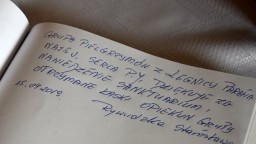 GRUPA PIELGRZYMÓW Z LEGNICY PARAFIA
NAJŚW. SERCA P.J. DZIĘKUJE ZA
NAWIEDZENIE SANKTUARIUM,
OTRZYMANE ŁASKI OPIEKUN GRUPY
15.09.2019.